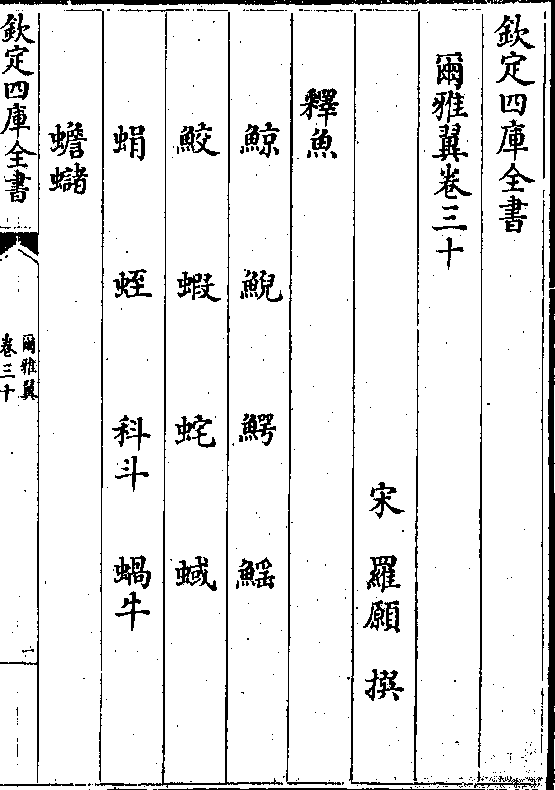 欽定四庫全書
爾雅翼卷三十
宋 羅願 撰
釋魚
鯨 鯢 鰐 鰩
鮫 蝦 蛇 蜮
蛙 科斗 蝸牛
蟾蠩
欽定四庫全書
爾雅翼
卷三十
一